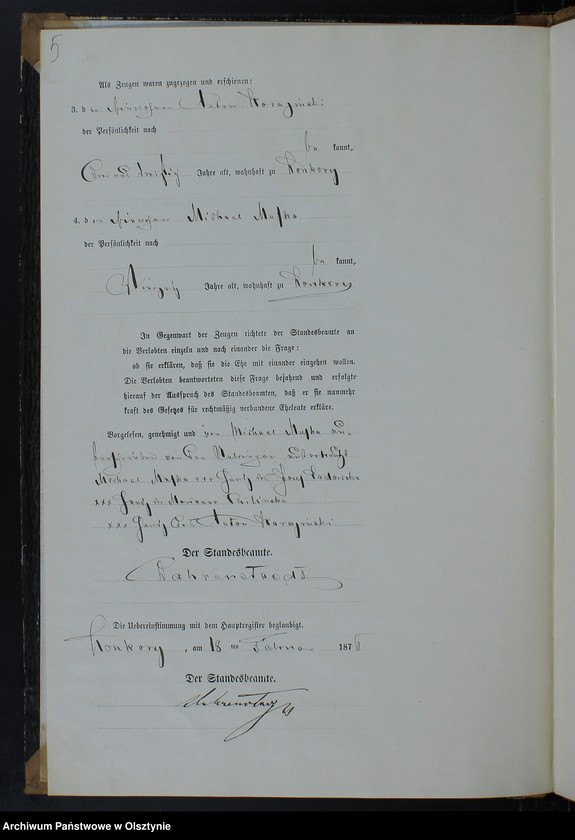 5
Als Zeugen waren zugezogen und erschienen:
3. d
der Persönlichkeit nach
be kannt,
Jahre alt, wohnhaft zu Konkory
4. d Michael Majka
der Persönlichkeit nach
be kannt,
Vierzig Jahre alt, wohnhaft zu Konkory
In Gegenwart der Zeugen richtete der Standesbeamte an
die Verlobten einzeln und nach einander die Frage:
ob sie erklären, daß sie die Ehe mit einander eingehen wollen.
Die Verlobten beantworteten diese Frage bejahend und erfolgte
hierauf der Ausspruch des Standesbeamten, daß er sie nunmehr
kraft des Gesetzes für rechtmäßig verbundene Eheleute erkläre.
Vorgelesen, genehmigt und von Michael Majka un-
terschrieben von den Uebrigen unterkreuzt
Michael Majka xxx Handz. des Josef
xxx Handz. der Marianna
xxx Handz. des Anton
Der Standesbeamte.
Die Uebereinstimmung mit dem Hauptregister beglaubigt.
Konkory, am 18 ten Februar 1876
Der Standesbeamte.
Archiwum Państwowe w Olsztynie